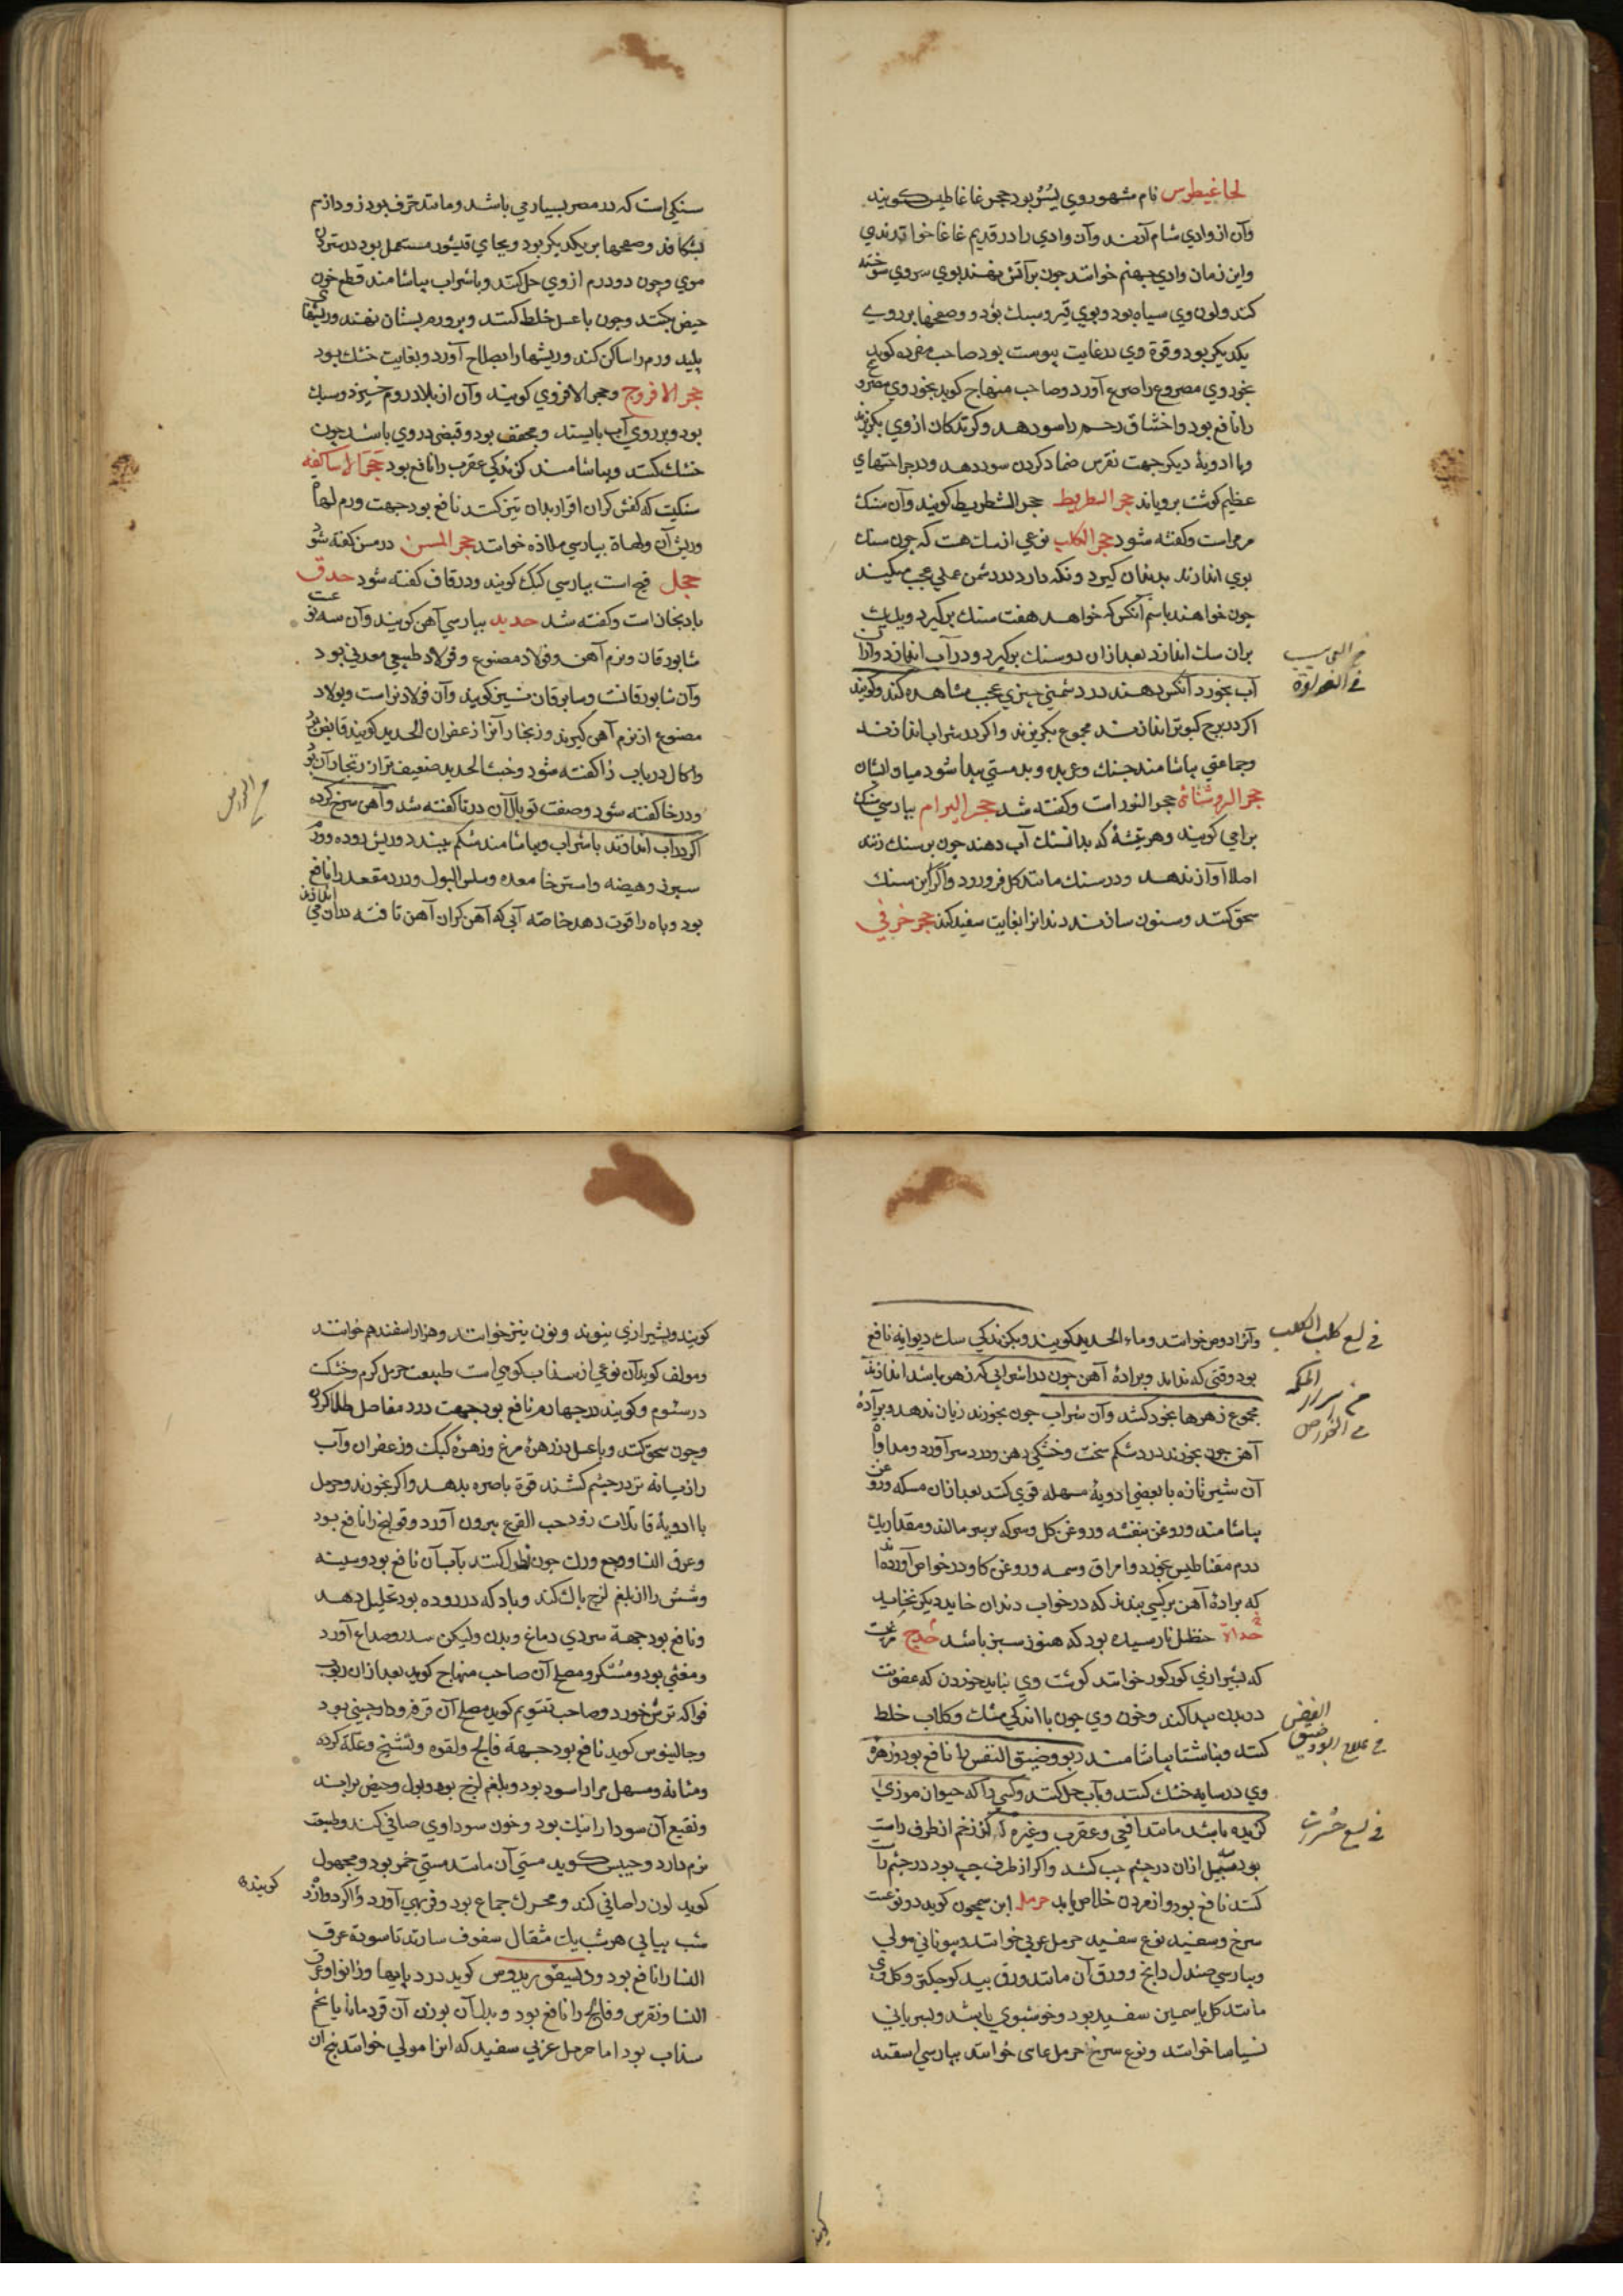 لحاغیطوس نام مشهور وی بسُنُر بود حجر غاغاطیس کویند
وآن از وادی شام آورند وآن وادی را در قدیم غاغا خواندندی
واین زمان وادی جهنم خوانند چون بر آتش نهند بوی سروی سوخته
کند ولون وی سیاه بود وبوی قیر وسبك بود وصفحها بر روی
یکدیکر بود وقوة وی در غایت یبوست بود صاحب مفرده کوید
بخور وی مصروع را صرع آورد وصاحب منهاج کوید بخور وی مصروع
را نافع بود واختناق رحم را سود دهد وکزندکان از وی بکریزند
وبا ادویهٔ دیکر جهت نقرس ضماد کردن سود دهد ودر جراحتهای
عظیم کوشت برویاند حجر السطریط حجر الشطریط کویند وآن سنك
مرمر است وکفته شود حجر الکلب نوعی از سك هست که چون سنك
بوی اندازند بدندان کیرد ونکه دارد در دشمن عملی عجب میکنند
چون خواهند باسم آنکس که خواهد هفت سنك برکیرد ویك یك
بران سك اندازد بعد ازان دو سنك برکیرد ودر آب اندازد وازان
آب بخورد آنکس دهند در دشمنی چیزی عجب مشاهده کند وکویند
اکر در برج کبوتر اندازند مجموع بکریزند واکر در شراب اندازند
وجماعتی بیاشامند جنك وعربده وبد مستی پیدا شود میان ایشان
حجر الروشنائی حجر النور است وکفته شد حجر البرام بپارسی سنك
برامی کویند وهر تیشهٔ که بدان سنك آب دهند چون بر سنك زنند
اصلا آواز ندهد ودر سنك مانند کل فرو رود واکر این سنك
سحق کنند وسنون سازند دندانرا بغایت سفید کند حجر خزفی
سنکی است که در مصر بسیار می باشد ومانند خزف بود زود از هم
بشکافد وصفحها بر یکدیکر بود وبجای قیشور مستعمل بود در ستردن
موی وچون دو درم از وی حل کنند وبا شراب بیاشامند قطع خون
حیض بکند وچون با عسل خلط کنند وبر ورم پستان نهند وریشهای
پلید ورم را ساکن کند وریشها را بصلاح آورد وبغایت خشك بود
حجر الافروج وحجر الافروی کویند وآن از بلاد روم خیزد وسبك
بود وبر روی آب بایستد ومجفف بود وقبضی در وی باشد چون
خشك کنند وبیاشامند کزندکی عقرب را نافع بود حجر الاساکفه
سنکیست که کفش کران افزار بدان تیز کنند نافع بود جهت ورم لهاة
وریش آن ولهاة بپارسی ملاذه خوانند حجر المسن در مسن کفته شود
حجل قبج است بپارسی کبك کویند ودر قاف کفته شود حدق
بادنجان است وکفته شد حدید بپارسی آهن کویند وآن سه نوعست
شابورقان ونرم آهن وفولاد مصنوع وفولاد طبیعی معدنی بود
وآن شابورقانست وسابورقان نیز کویند وآن فولاد نراست وپولاد
مصنوع از نرم آهن کیرند وزنجار آنرا زعفران الحدید کویند قابض بود
واکال در باب زا کفته شود وخبث الحدید ضعیف تر از زنجار آن بود
ودر خا کفته شود وصفت توبال آن در تا کفته شد وآهن سرخ کرده
اکر در آب اندازند یا شراب وبیاشامند شکم ببندد وریش روده وورم
سپرز وهیضه واسترخا معده وسلس البول ودرد مقعد را نافع
بود وباه را قوت دهد خاصه آبی که آهن کران آهن تافته دران می اندازند
فی لسع کلب الکلب
وآنرا دوص خوانند وماء الحدید کویند وبکزندکی سك دیوانه نافع
بود وقتی که نداند وبرادهٔ آهن چون در شرابی که زهر باشد اندازند
مجموع زهرها بخود کشد وآن شراب چون بخورند زیان ندهد وبرادهٔ
آهن چون بخورند درد شکم سخت وخشکی دهن ودرد سر آورد ومداواة
آن شیر تازه با بعضی ادویهٔ مسهله قوی کنند بعد ازان مسکه وروغن
بیاشامند وروغن بنفشه وروغن کل وسرکه بر سر مالند ومقدار یك
درم مقناطیس بخورد وامراق وسمه وروغن کاو ودر خواص آورده‌اند
که برادهٔ آهن بر کسی بندند که در خواب دندان خاید دیکر نخاید
حداة حنظل نارسیده بود که هنوز سبز باشد حدج مرغیست
که بشیرازی کورکور خوانند کوشت وی نباید خوردن که عفونت
در بدن پیدا کند وخون وی چون با اندکی مشك وکلاب خلط
فی علاج الربو وضیق النفس
کنند وبناشتا بیاشامند ربو وضیق النفس را نافع بود وزهرهٔ
وی در سایه خشك کنند وبآب حل کنند وکسی را که حیوان موذی
کزیده باشد مانند افعی وعقرب وغیره کر زخم از طرف راست
بود سه میل ازان در چشم چپ کشد واکر از طرف چپ بود در چشم راست
کشد نافع بود واز مردن خلاص یابد حرمل ابن سمجون کوید دو نوعست
سرخ وسفید نوع سفید حرمل عربی خوانند وبیونانی مولی
وبپارسی صندل دانج وورق آن مانند ورق بید کوچکتر وکل وی
مانند کل یاسمین سفید بود وخوشبوی باشد وبسریانی
بسباسا خوانند ونوع سرخ حرمل عامی خوانند بپارسی اسفند
کویند وبشیرازی سوند ونون نیز خوانند وهزار اسفند هم خوانند
ومولف کوید آن نوعی از سداب کوهی است طبیعت حرمل کرم وخشکست
در سئوم وکویند در چهارم نافع بود جهت درد مفاصل طلا کردن
وچون سحق کنند وبا عسل وزهرهٔ مرغ وزهرهٔ کبك وزعفران وآب
رازیانه تر در چشم کشند قوة باصره بدهد واکر بخورند وحرمل
با ادویهٔ قاتلات دود حب القرع بیرون آورد وقولنج را نافع بود
وعرق النسا ووجع ورك چون نطول کنند بآب آن نافع بود وسینه
وشش را از بلغم لزج پاك کند وباد که در روده بود تحلیل دهد
ونافع بود جهة سردی دماغ وبدن ولیکن سدر وصداع آورد
ومغثی بود ومسکر ومصلح آن صاحب منهاج کوید بعد ازان ربوب
فواکه ترش خورد وصاحب تقویم کوید مصلح آن قرفه ودارچینی بود
وجالینوس کوید نافع بود جهة فالج ولقوه وتشنج وعلة کرده
ومثانه ومسهل مرار اسود بود وبلغم لزج بود وبول وحیض براند
ونقیع آن سودا را نیك بود وخون سوداوی صافی کند وطبیعت
نرم دارد وحبیش کوید مستی آن مانند مستی خمر بود ومجهول
کوید لون را صافی کند ومحرك جماع بود وفربهی آورد واکر دوازده
شب پیاپی هر شب یك مثقال سفوف سازند تا سوده عرق
النسا را نافع بود ودیسقوریدوس کوید درد پایها وزانو وعرق
النسا ونقرس وفالج را نافع بود وبدل آن بوزن آن قردمانا یا تخم
سداب بود اما حرمل عربی سفید که انرا مولی خوانند بیخ آن